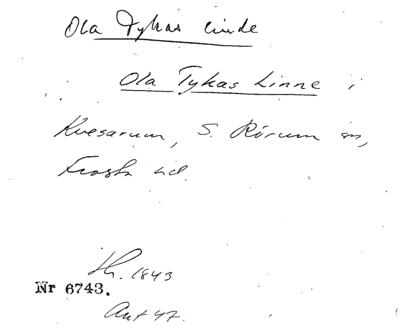 Ola Tykas linde
Ola Tykas Linne i
Kvesarum, S. Rörum sn,
Frosta hd.
Lh. 1843
Nr 6743.
Ant 47.